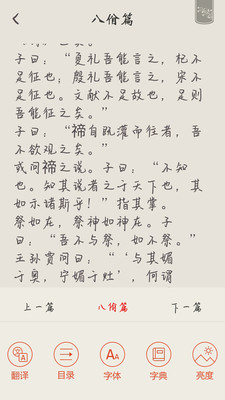 八佾篇
子曰：“夏礼吾能言之，杞不
足征也；殷礼吾能言之，宋不
足征也。文献不足故也，足则
吾能征之矣。”
子曰：“禘自既灌而往者，吾
不欲观之矣。”
或问禘之说。子曰：“不知
也。知其说者之于天下也，其
如示诸斯乎！”指其掌。
祭如在，祭神如神在。子
曰：“吾不与祭，如不祭。”
王孙贾问曰：“‘与其媚
于奥，宁媚于灶’，何谓
上一篇 八佾篇 下一篇
翻译 目录 字体 字典 亮度